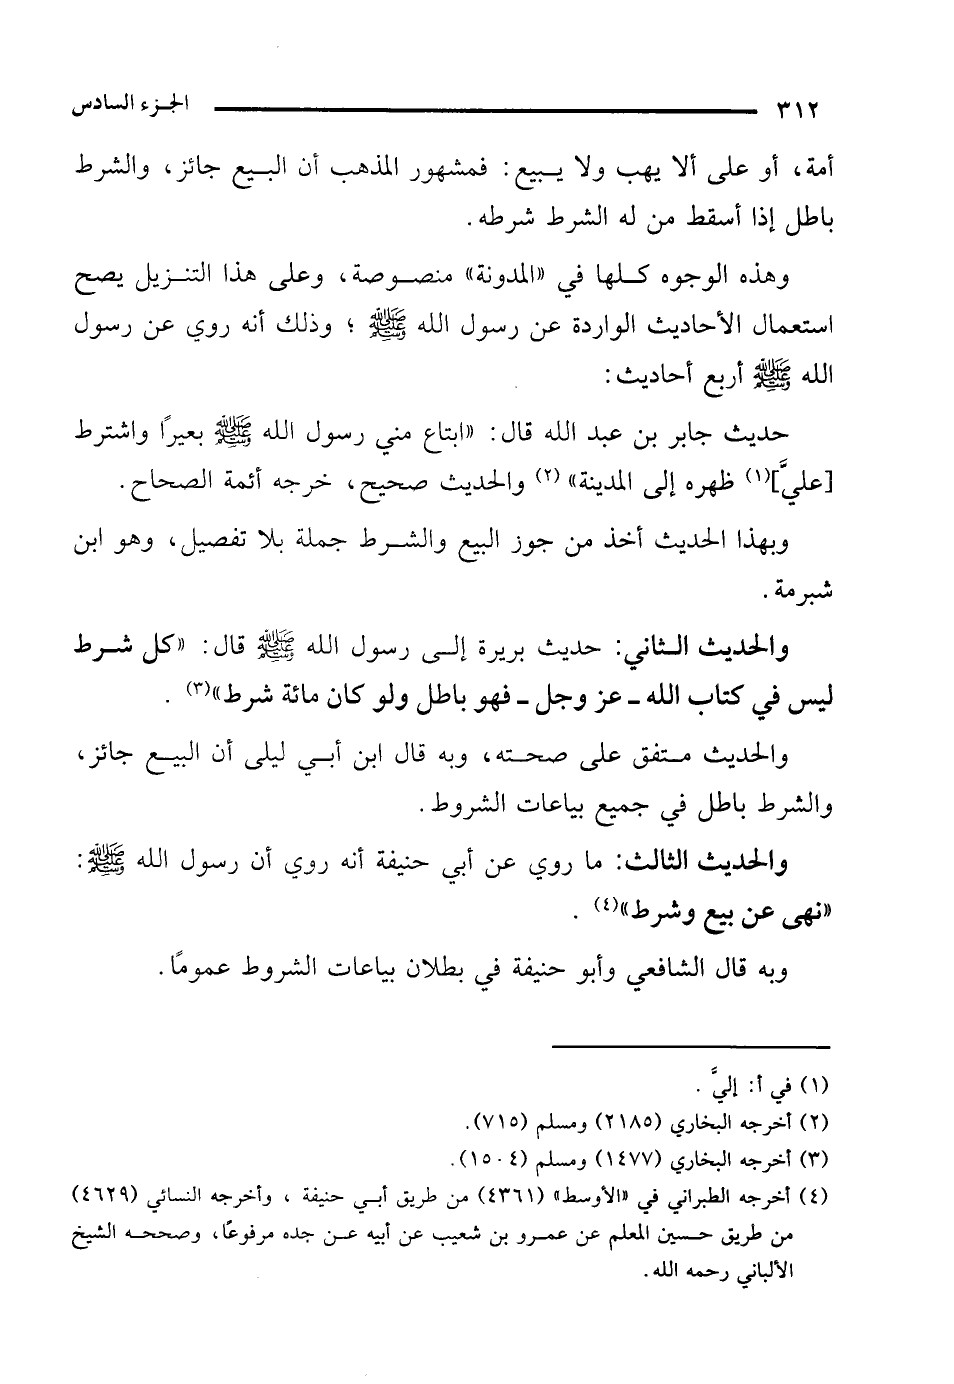 ٣١٢ الجزء السادس
أمة، أو على ألا يهب ولا يبيع: فمشهور المذهب أن البيع جائز، والشرط
باطل إذا أسقط من له الشرط شرطه.
وهذه الوجوه كلها في «المدونة» منصوصة، وعلى هذا التنزيل يصح
استعمال الأحاديث الواردة عن رسول الله ﷺ ؛ وذلك أنه روي عن رسول
الله ﷺ أربع أحاديث:
حديث جابر بن عبد الله قال: «ابتاع مني رسول الله ﷺ بعيرًا واشترط
[عليَّ](١) ظهره إلى المدينة» (٢) والحديث صحيح، خرجه أئمة الصحاح.
وبهذا الحديث أخذ من جوز البيع والشرط جملة بلا تفصيل، وهو ابن
شبرمة.
والحديث الثاني: حديث بريرة إلى رسول الله ﷺ قال: «كل شرط
ليس في كتاب الله ـ عز وجل ـ فهو باطل ولو كان مائة شرط»(٣) .
والحديث متفق على صحته، وبه قال ابن أبي ليلى أن البيع جائز،
والشرط باطل في جميع بياعات الشروط.
والحديث الثالث: ما روي عن أبي حنيفة أنه روي أن رسول الله ﷺ:
«نهى عن بيع وشرط»(٤) .
وبه قال الشافعي وأبو حنيفة في بطلان بياعات الشروط عمومًا.
(١) في أ: إليَّ .
(٢) أخرجه البخاري (٢١٨٥) ومسلم (٧١٥).
(٣) أخرجه البخاري (١٤٧٧) ومسلم (١٥٠٤).
(٤) أخرجه الطبراني في «الأوسط» (٤٣٦١) من طريق أبي حنيفة ، وأخرجه النسائي (٤٦٢٩)
من طريق حسين المعلم عن عمرو بن شعيب عن أبيه عن جده مرفوعًا، وصححه الشيخ
الألباني رحمه الله.